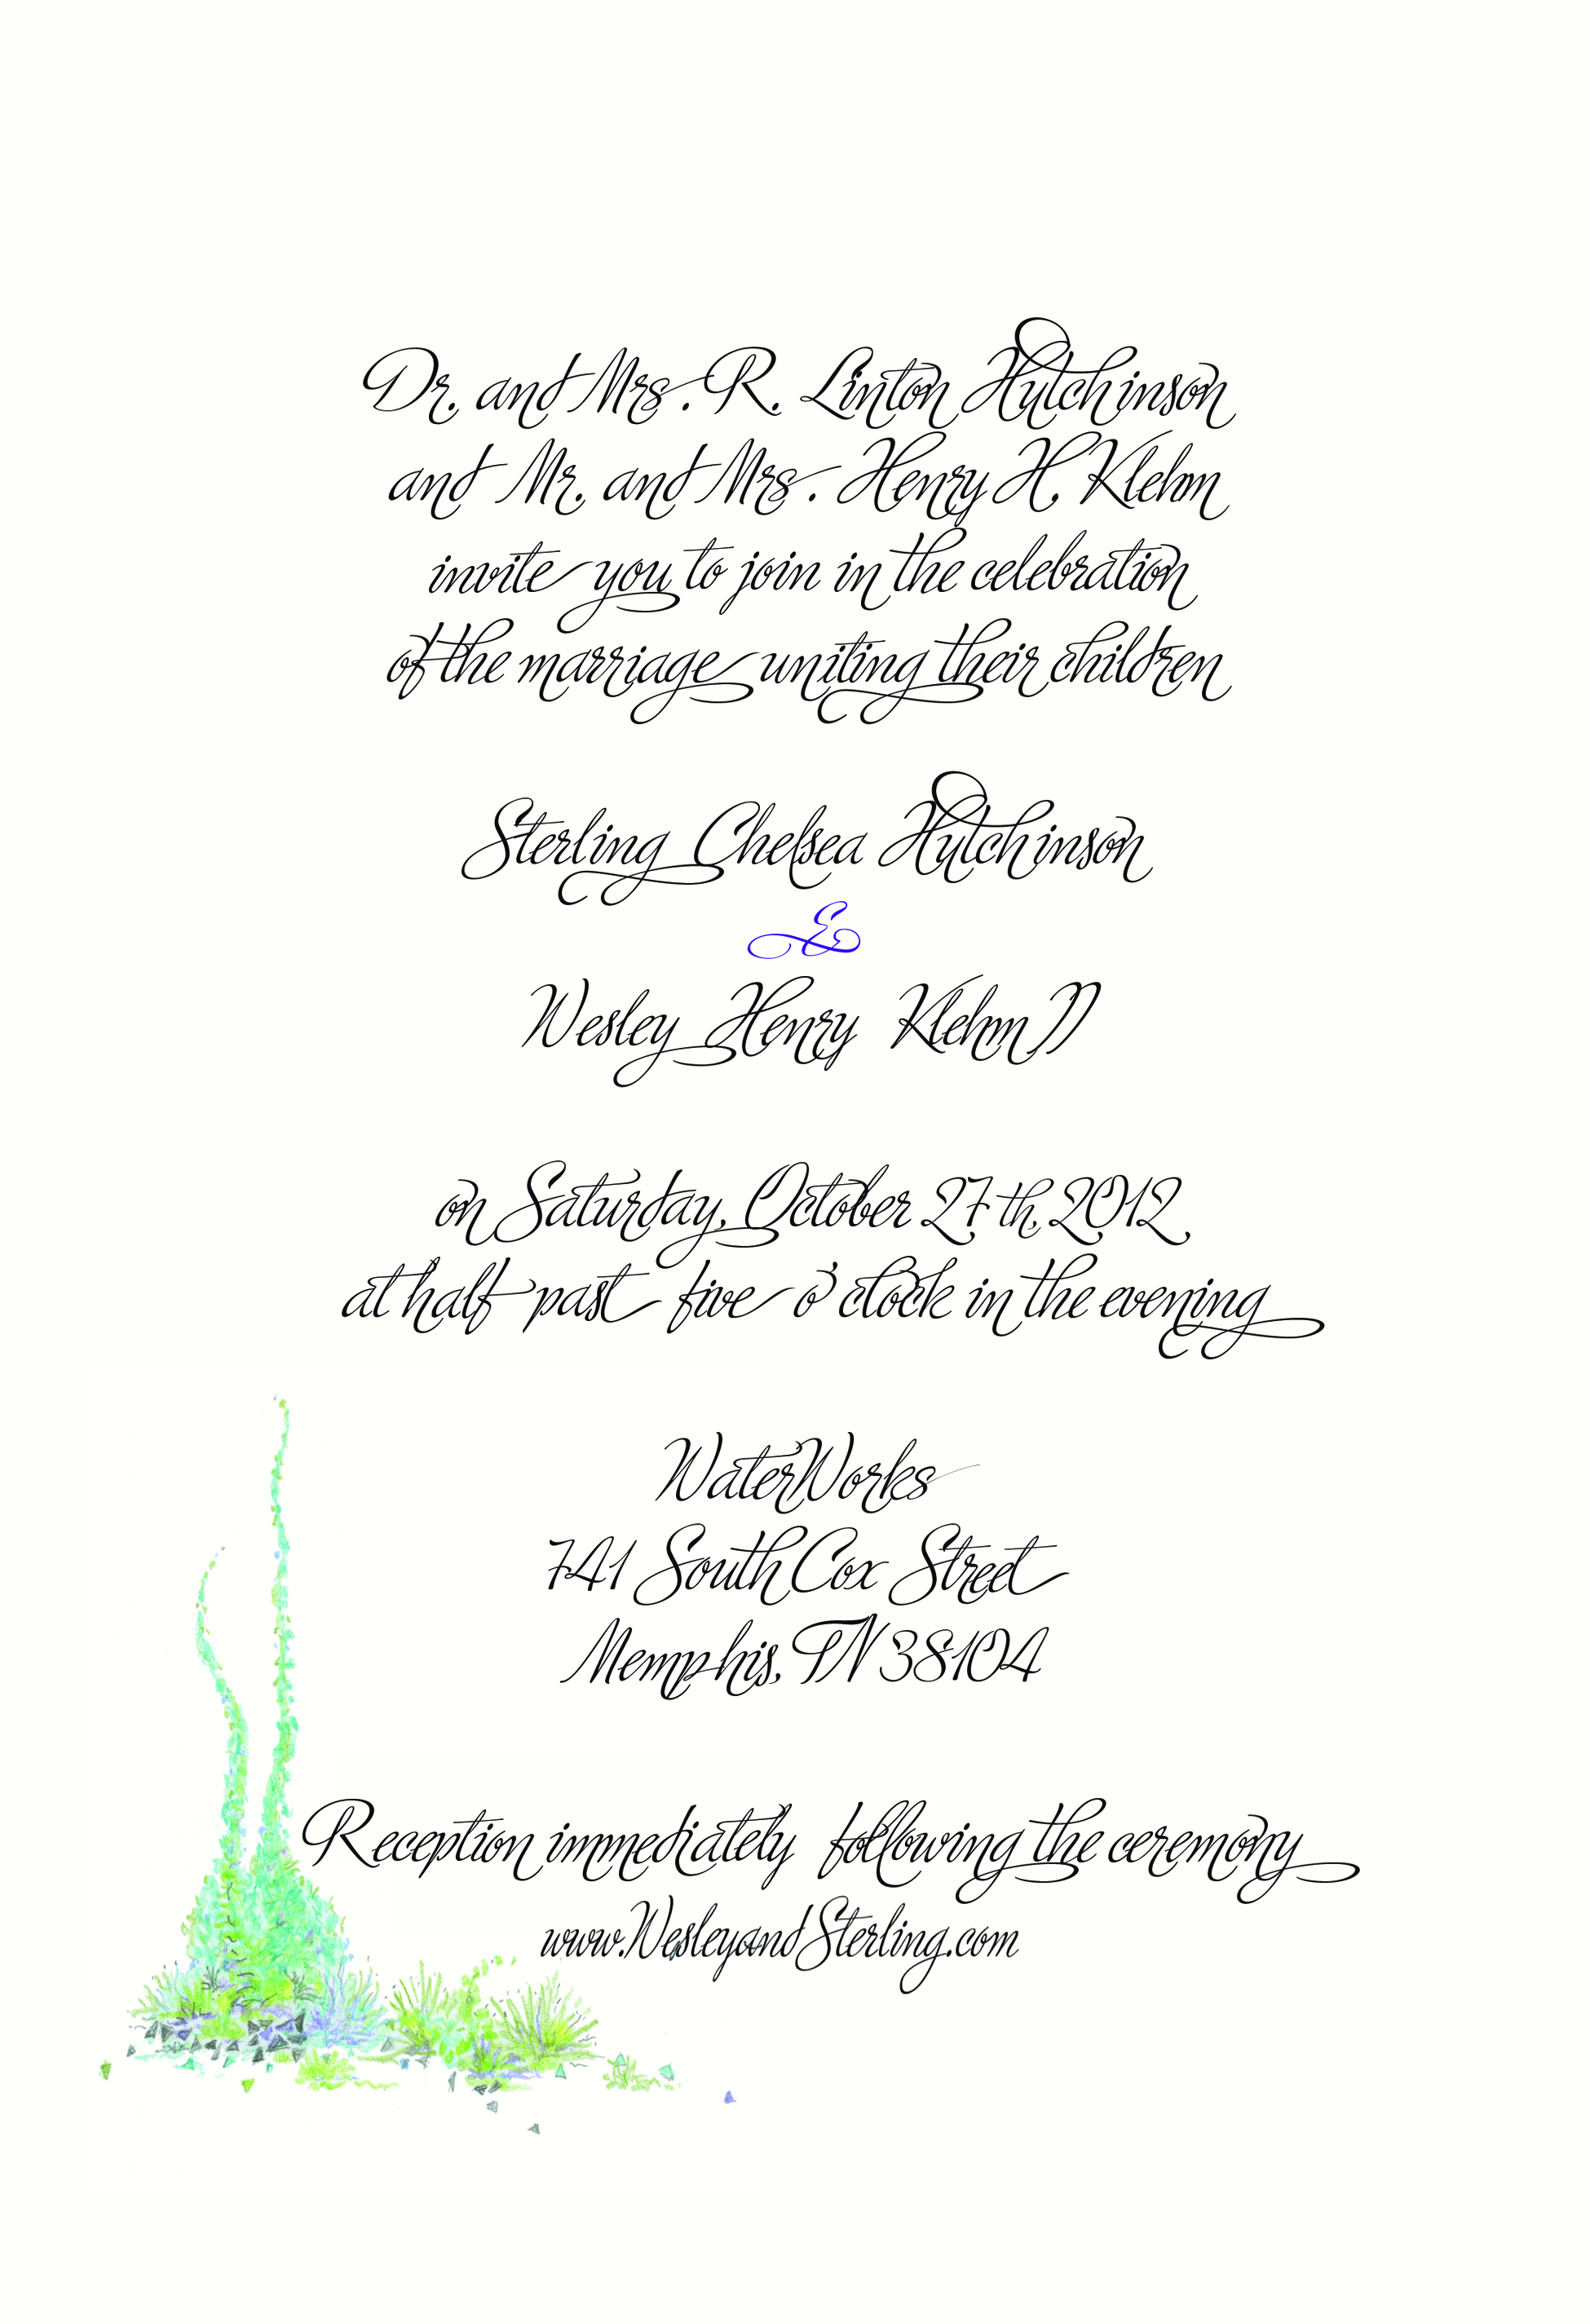 Dr. and Mrs. R. Linton Hutchinson
and Mr. and Mrs. Henry H. Klehm
invite you to join in the celebration
of the marriage uniting their children
Sterling Chelsea Hutchinson
&
Wesley Henry Klehm II
on Saturday, October 27th, 2012
at half past five o'clock in the evening
WaterWorks
741 South Cox Street
Memphis, TN 38104
Reception immediately following the ceremony
www.WesleyandSterling.com